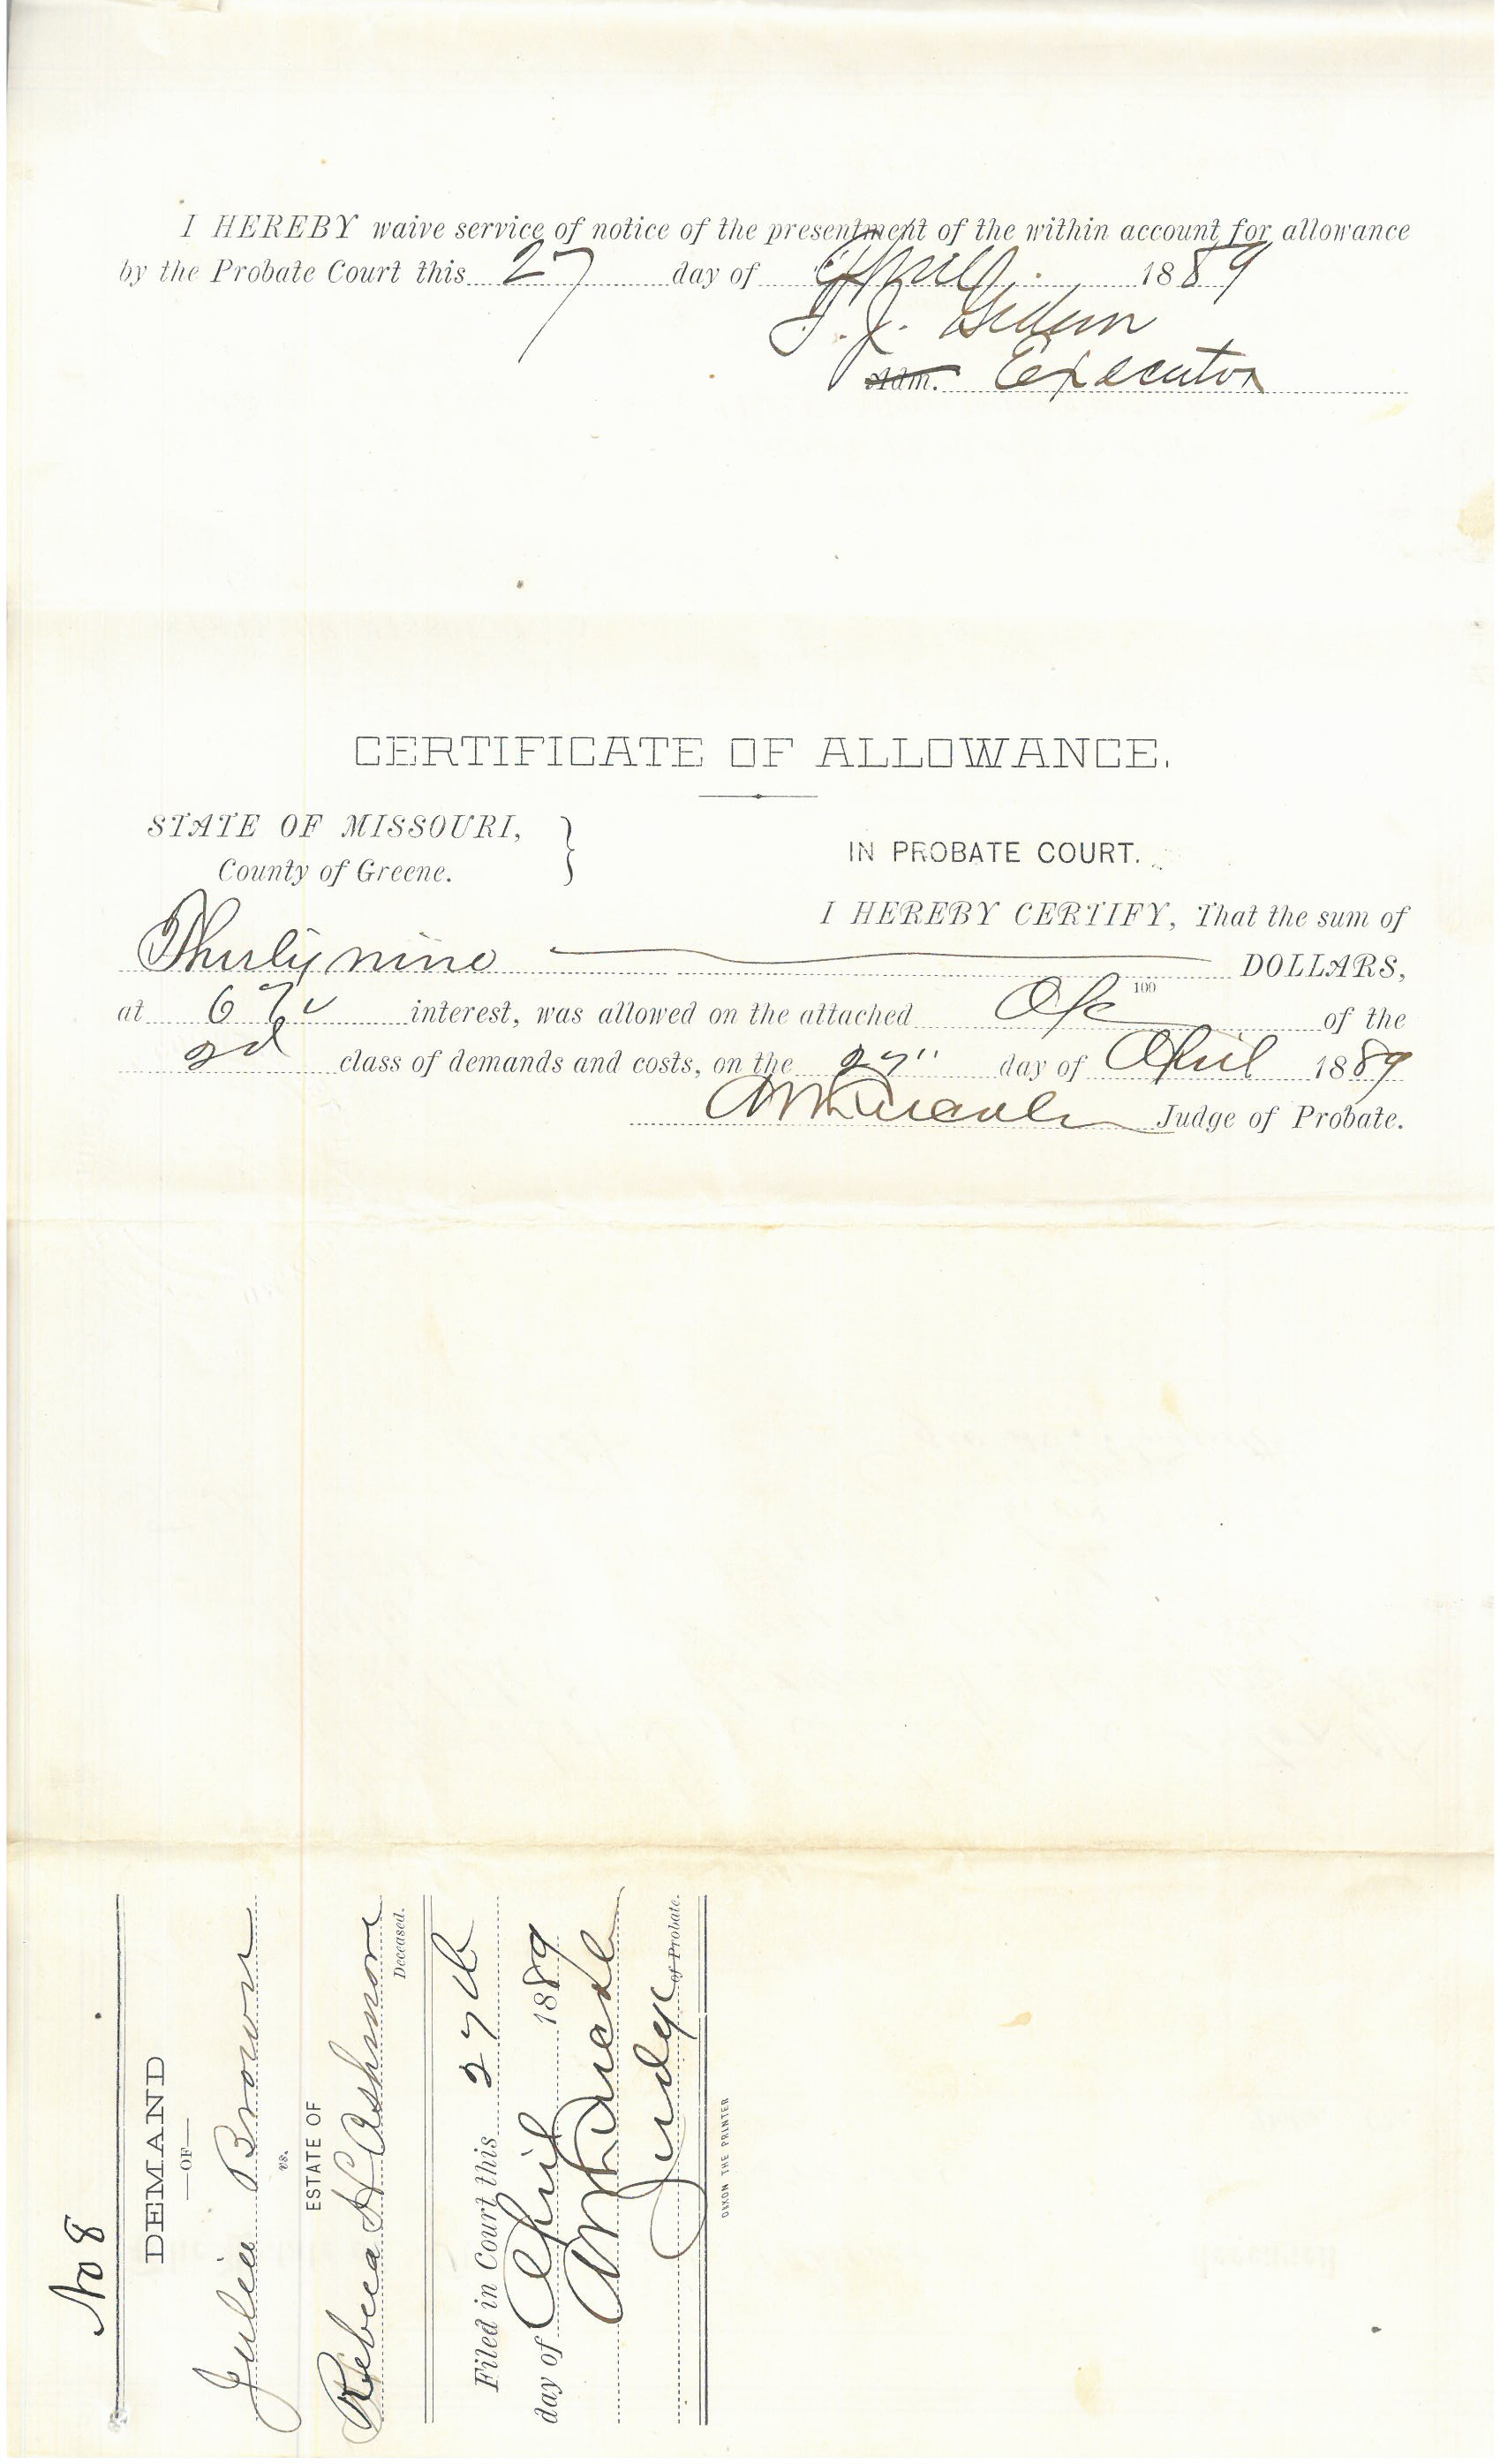 I HEREBY waive service of notice of the presentment of the within account for allowance
by the Probate Court this 27 day of April 1889
Adm. Executor
CERTIFICATE OF ALLOWANCE.
STATE OF MISSOURI,
County of Greene.
IN PROBATE COURT.
I HEREBY CERTIFY, That the sum of
Thirty nine DOLLARS,
100
at 6 % interest, was allowed on the attached of the
2d class of demands and costs, on the 27" day of April 1889
Judge of Probate.
No 8
DEMAND
—OF—
Julia Brown
vs.
ESTATE OF
Rebeca H Ashmore
Deceased.
Filed in Court this 27th
day of April 1889
Judge of Probate.
DIXON THE PRINTER